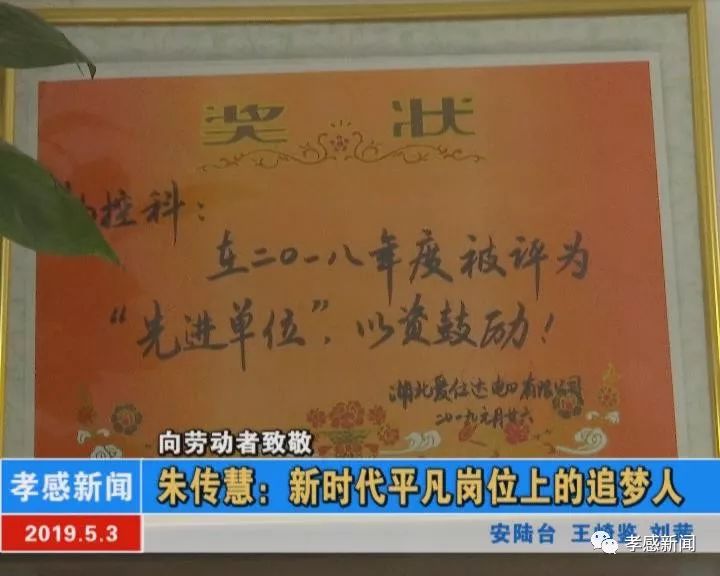 奖状
控科：
在二〇一八年度被评为
“先进单位”，以资鼓励！
湖北爱仕达电器有限公司
二〇一九元月廿六
向劳动者致敬
孝感新闻
朱传慧：新时代平凡岗位上的追梦人
2019.5.3
安陆台 王 鉴 刘
孝感新闻